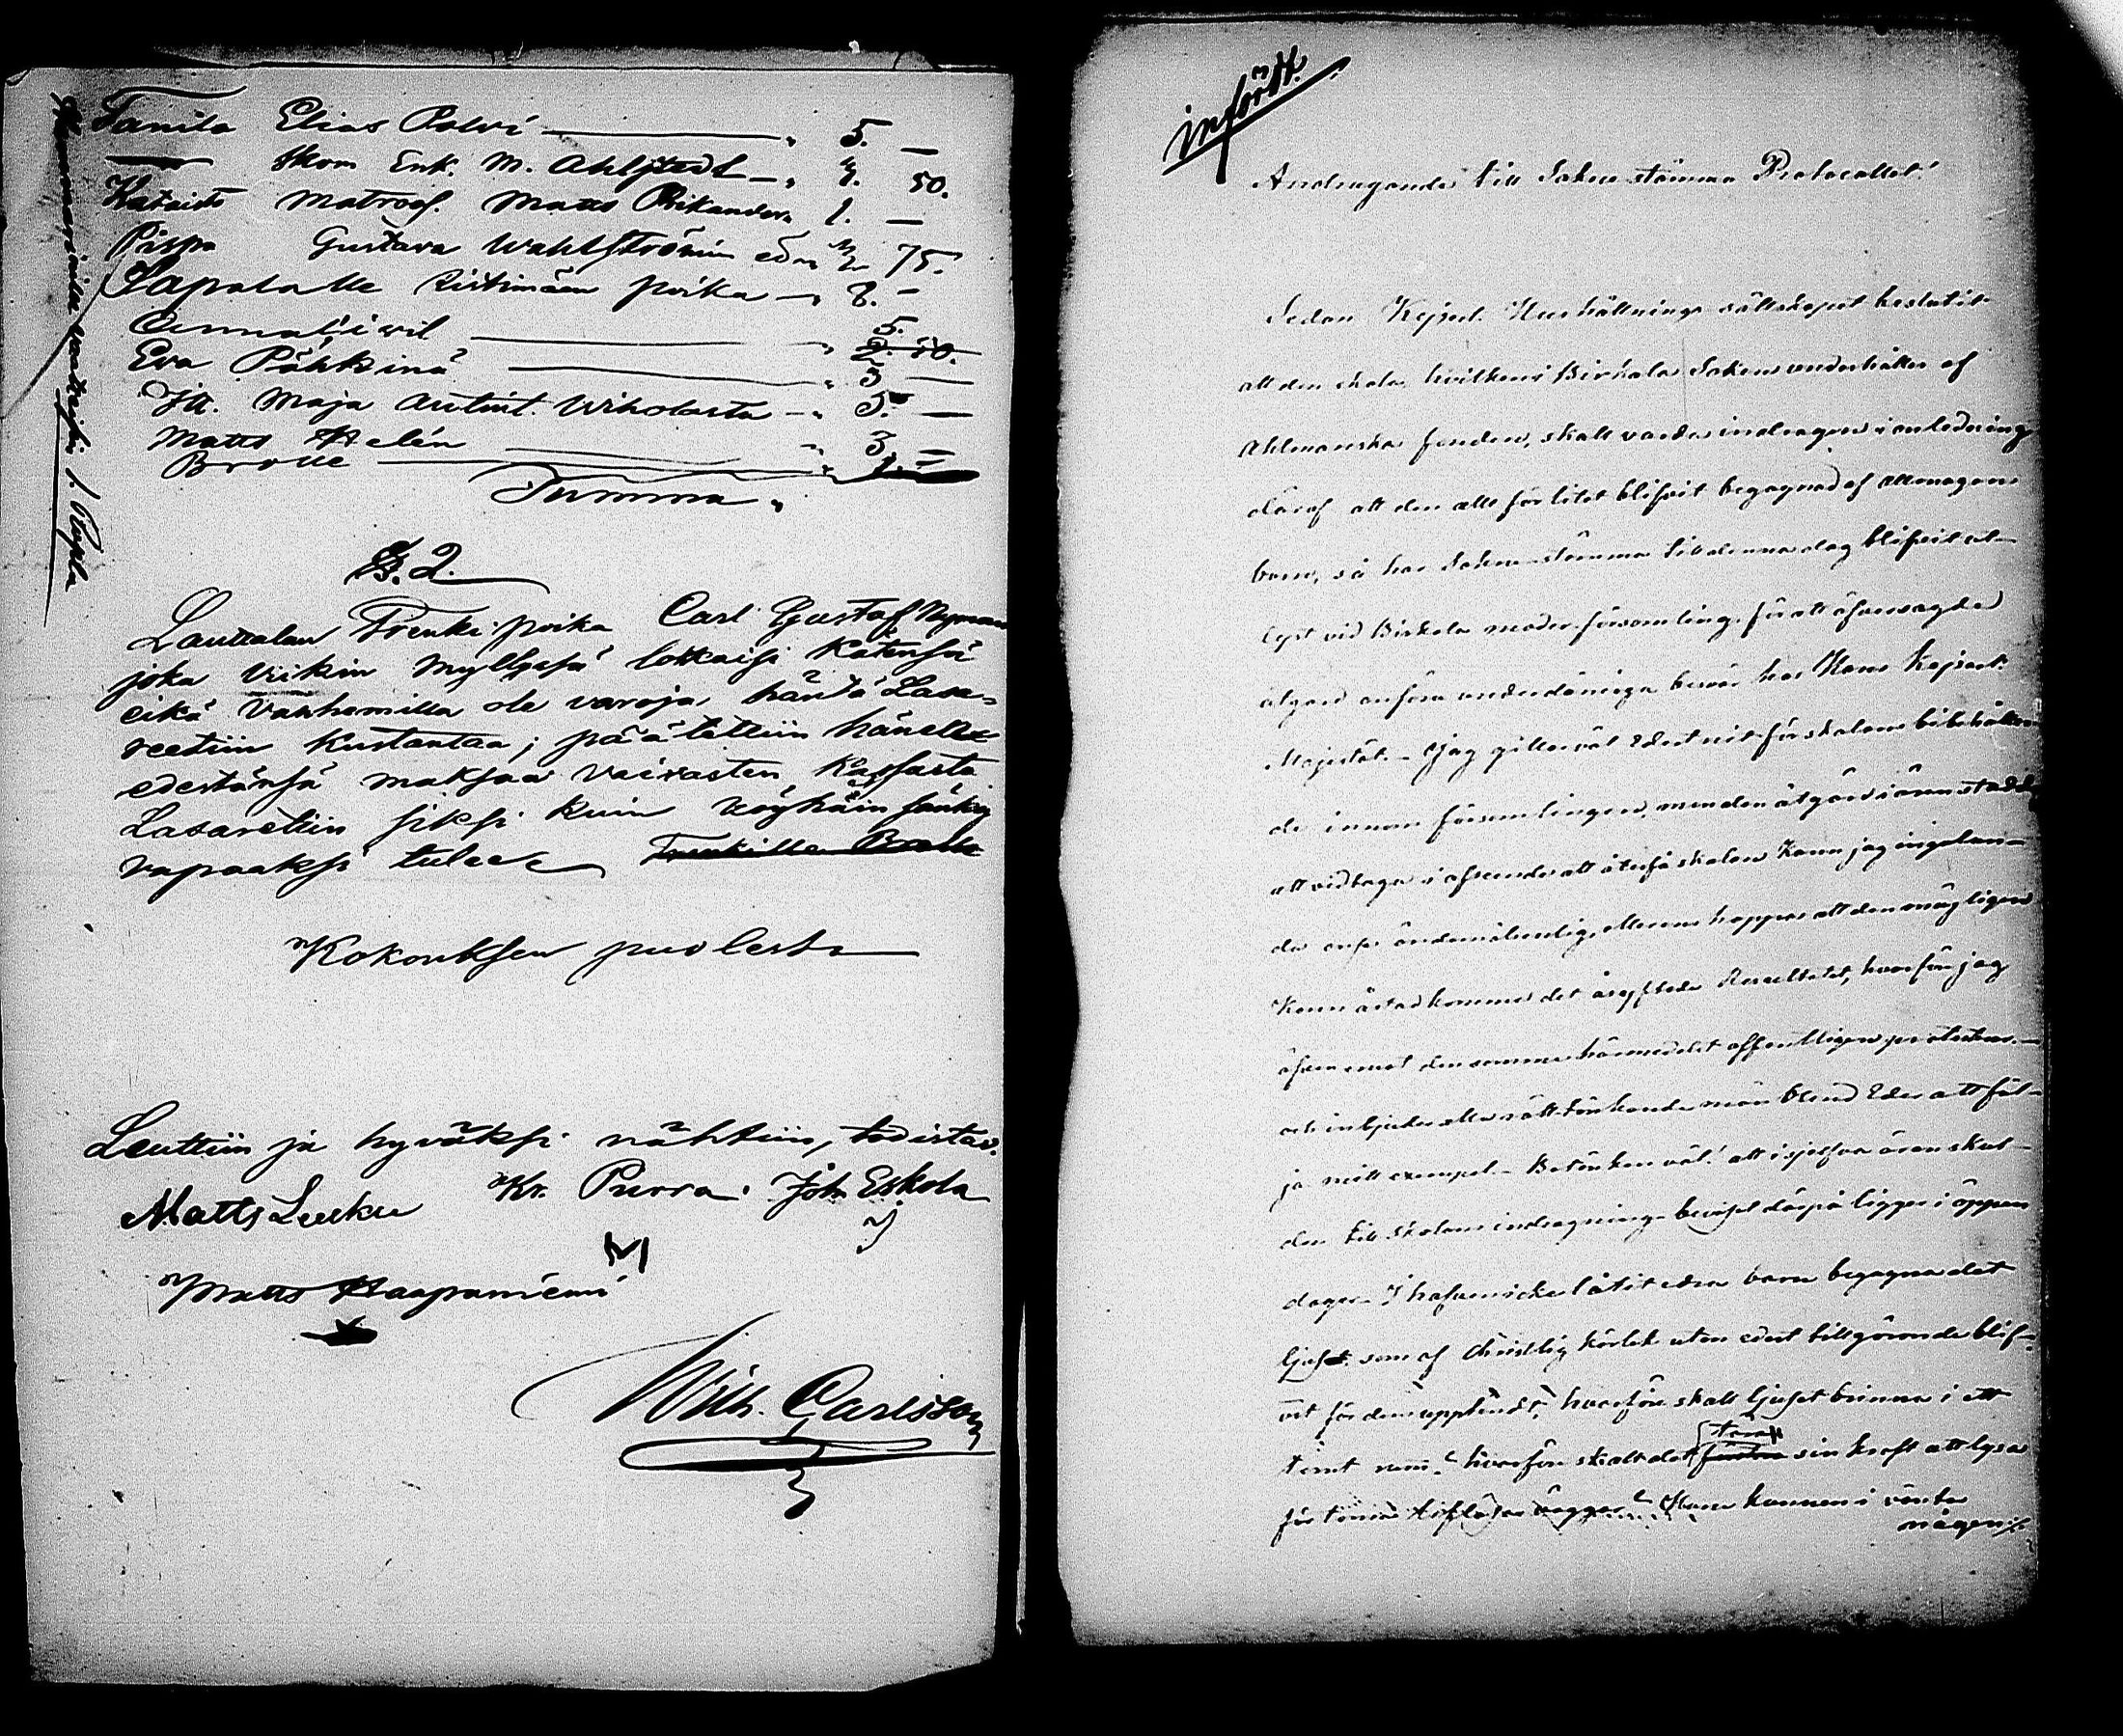 Tanila Elias Polvi — " 5. —
— Skom Enk. M. Ahlstedt — " 7. 50.
Kataisto Matroos. Matts Rikandern 1. —
Piispa Gustava Wahlströmin edes 75.
Sapatalle Ristimäen poika — " 8. —
Anna Siwil 5.
Eva Pähkinä " 3 —
Itt. Maja Antint. Wiholasta — " 5. —
Matts Helén " 3. —
Brolle " 1. —
Summa "
§. 2.
Lauttalan Trenki poika Carl Gustaf Nyman
joka Viikin Myllysä loukkaisi Kätensä
eikä Vanhemilla ole varoja häntä Lasa-
reetiin Kustantaa; päätettiin hänelle
edestänsä maksaa Vaivasten Kassasta
Lasaretiin siksi kuin köyhäin sänky
vapaaksi tulee
Kokouksen puolesta
Leuttiin ja hyväksi nähtiin, todistav.
Matts Leuku Kr. Purra. Joh Eskola
Matts Haapaniemi
Wilh. Carlsson
infördt.
Andragande till Sokne stämmo Protocollet!
Sedan Kejserl. Hushållnings sällskapet beslutit
att den skola, hvilken i Birkala Soken underhålles af
Ahlmanska fonden, skall varda indragen i anledning
deraf att den allt för litet blifvit begagnad af allmogens
barn, så har Sokne-stämma till denna dag blifvit ut-
lyst vid Birkala moder-församling, för att öfver sagde
åtgärd anföra underdåniga besvär hos Hans Kejserl.
Majestät. — Jag gillar väl Edert nit för skolans bibehållan-
de innom församlingen, men den åtgärd i ären stadde
att vidtaga i afseende att återfå skolan kan jag ingalun-
da anse ändamålsenlig, ellerens hoppas att den möjligen
kan åstadkomma det åsyftade Resultatet, hvarföre jag
äfven emot densamma härmedelst offentligen protesterar —
och inbjuder alla rätt tänkande män bland Eder att föl-
ja mitt exempel. — Betänken väl! att i sjelfva ären skul-
den till skolans indragning — beviset därpå ligger i öppen
dager. I hafven icke låtit edra barn begagna det
ljuset som af Christlig kärlek utan edert tillgörande blif-
vit för dem upptändt, hvarföre skall ljuset brinna i ett
tomt rum? hvarföre skall det förlora sin kraft att lysa
för toma väggar? Huru kunnen i vänta
någon